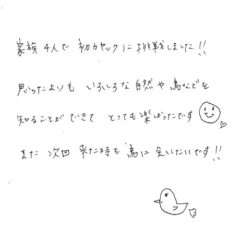 家族4人で 初カヤックに挑戦しました!!
思ったよりも いろいろな自然や 鳥などを
知ることができて とっても楽しかったです
また 次回 来た時も 鳥に 会いたいです!!